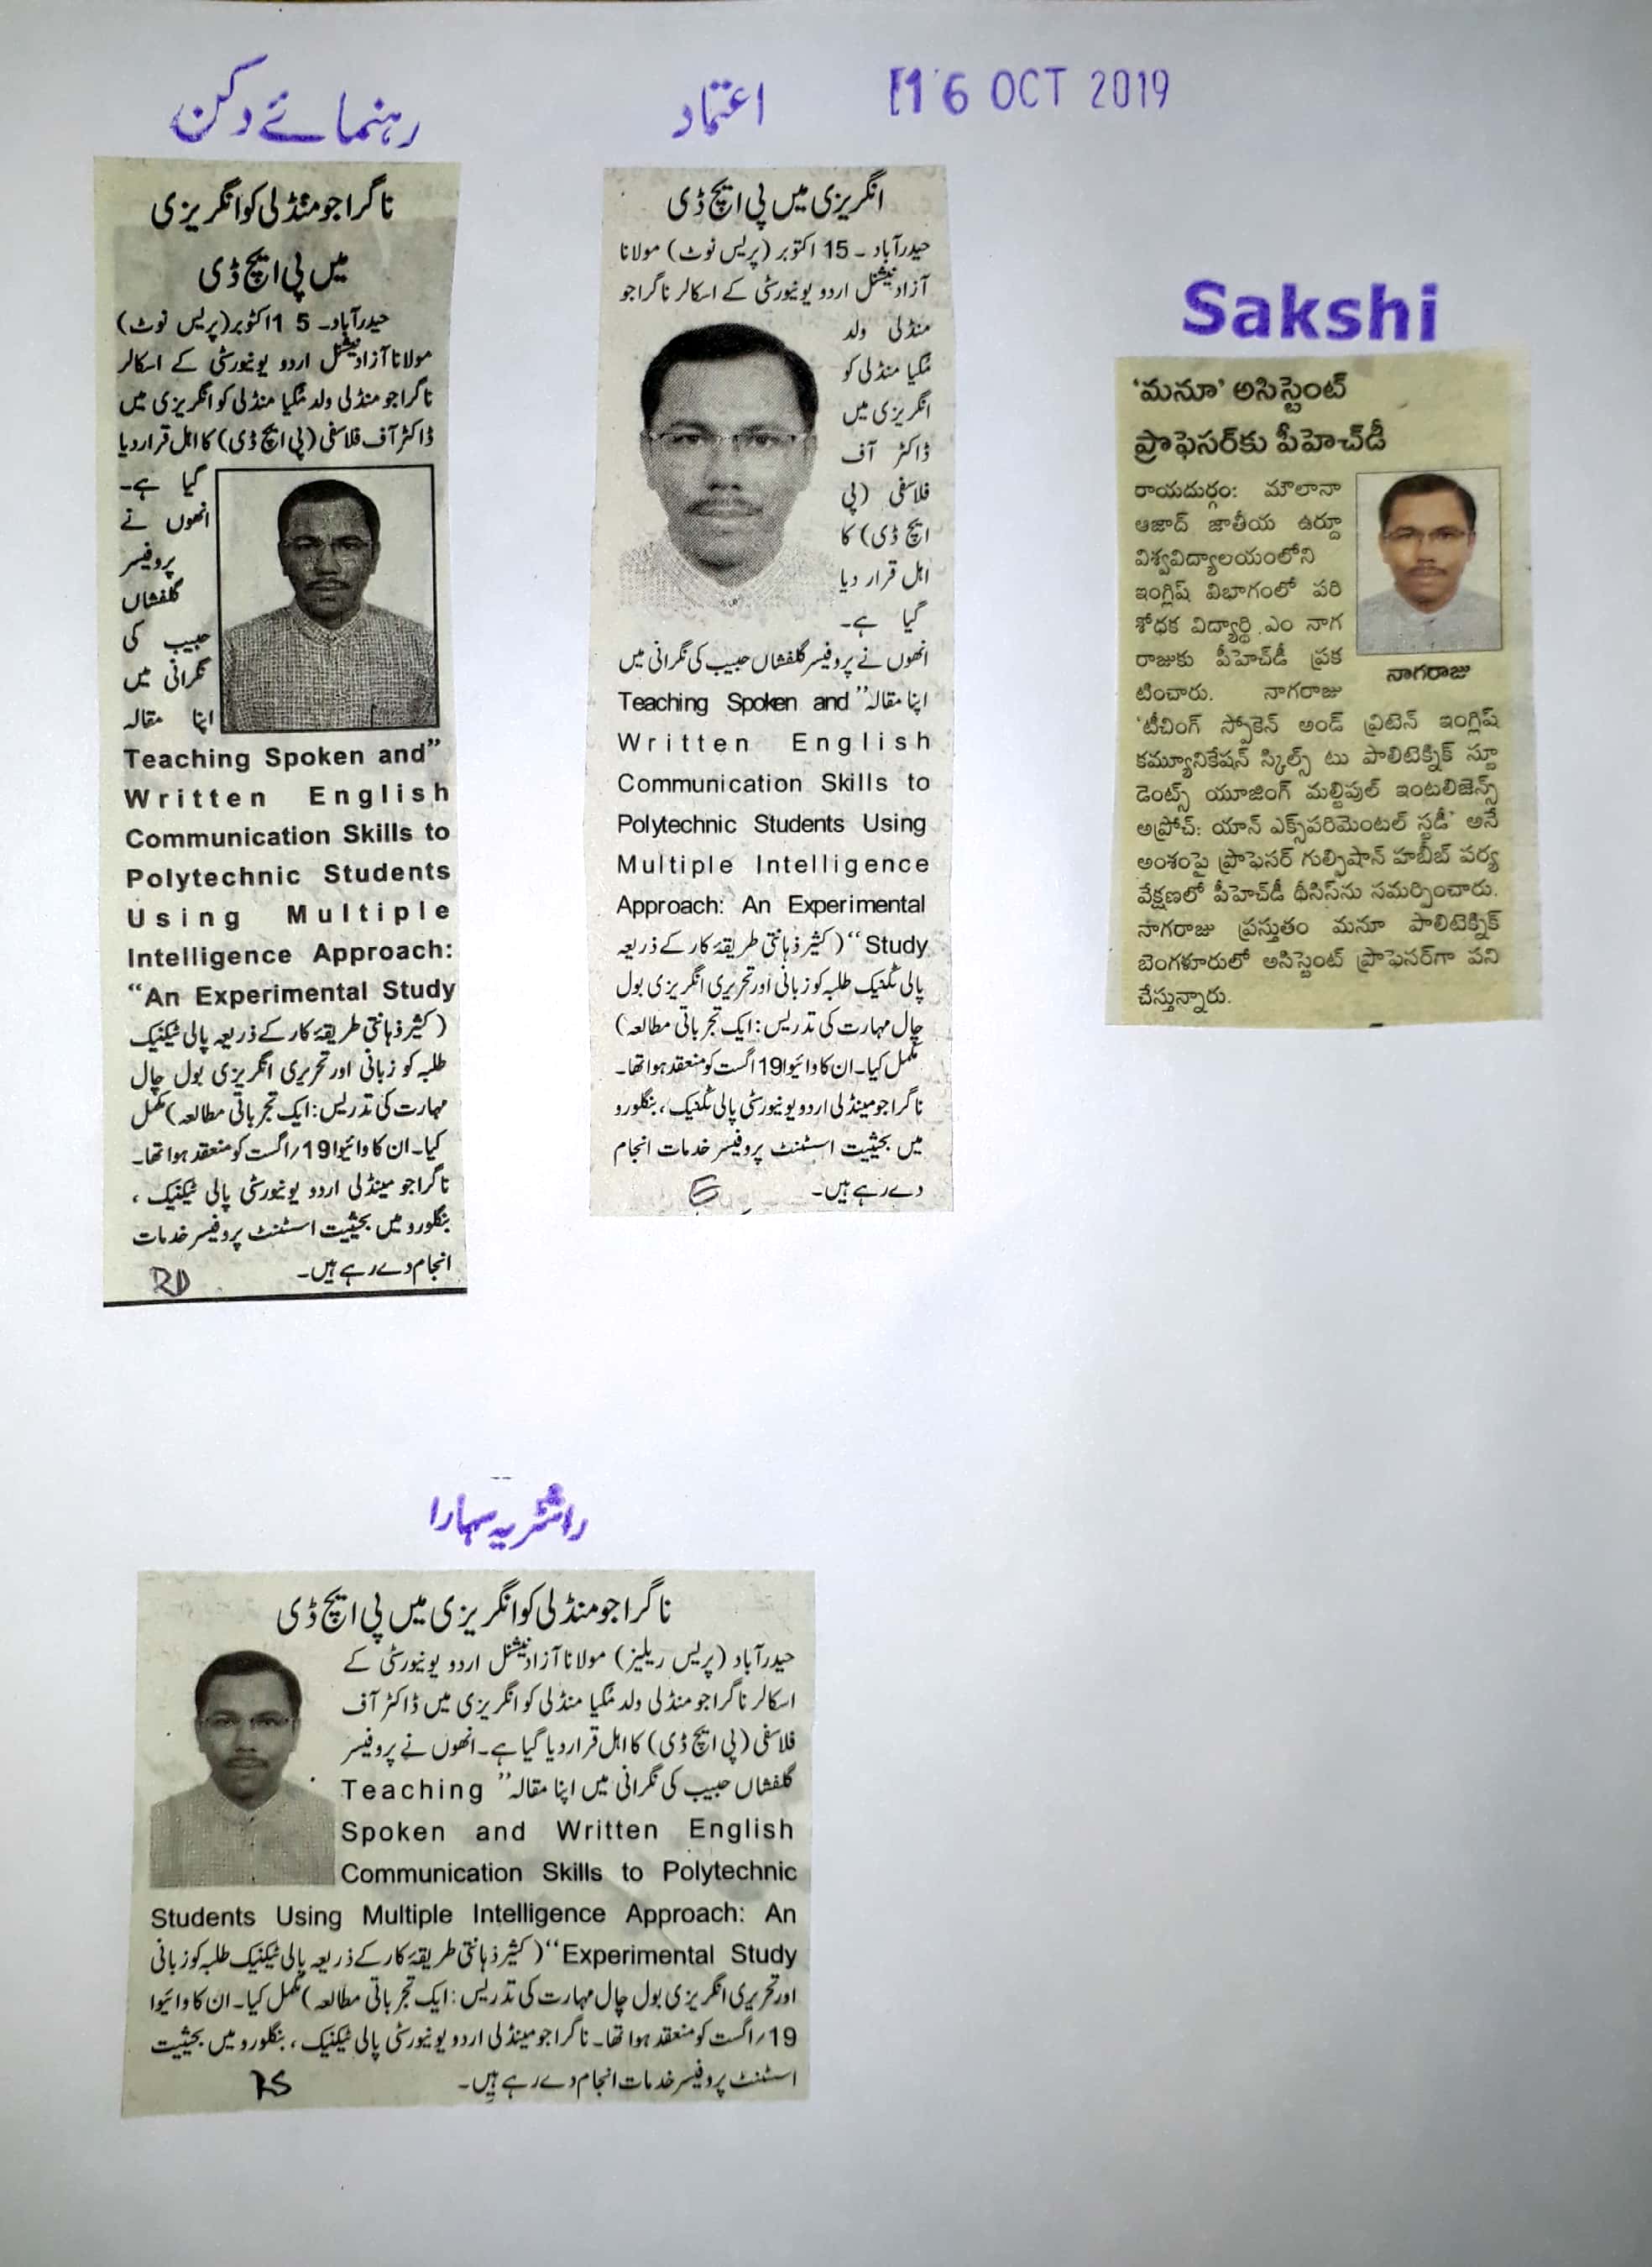 رہنمائے دکن
ناگراجو منڈلی کو انگریزی
میں پی ایچ ڈی
حیدرآباد۔ 15 اکتوبر (پریس نوٹ)
مولانا آزاد نیشنل اردو یونیورسٹی کے اسکالر
ناگراجو منڈلی ولد منگیا منڈلی کو انگریزی میں
ڈاکٹر آف فلاسفی (پی ایچ ڈی) کا اہل قرار دیا
گیا ہے۔
انھوں نے
پروفیسر
گلفشاں
حبیب کی
نگرانی میں
اپنا مقالہ
Teaching Spoken and”
Written English
Communication Skills to
Polytechnic Students
Using Multiple
Intelligence Approach:
“An Experimental Study
(کثیر ذہانتی طریقۂ کار کے ذریعہ پالی ٹیکنیک
طلبہ کو زبانی اور تحریری انگریزی بول چال
مہارت کی تدریس: ایک تجرباتی مطالعہ) مکمل
کیا۔ ان کا وائیوا 19/اگست کو منعقد ہوا تھا۔
ناگراجو مینڈلی اردو یونیورسٹی پالی ٹیکنیک،
بنگلورو میں بحیثیت اسسٹنٹ پروفیسر خدمات
انجام دے رہے ہیں۔
RD
اعتماد
انگریزی میں پی ایچ ڈی
حیدرآباد۔ 15 اکتوبر (پریس نوٹ) مولانا
آزاد نیشنل اردو یونیورسٹی کے اسکالر ناگراجو
منڈلی ولد
منگیا منڈلی کو
انگریزی میں
ڈاکٹر آف
فلاسفی (پی
ایچ ڈی) کا
اہل قرار دیا
گیا ہے۔
انھوں نے پروفیسر گلفشاں حبیب کی نگرانی میں
اپنا مقالہ ”Teaching Spoken and
Written English
Communication Skills to
Polytechnic Students Using
Multiple Intelligence
Approach: An Experimental
Study“ (کثیر ذہانتی طریقۂ کار کے ذریعہ
پالی ٹکنیک طلبہ کو زبانی اور تحریری انگریزی بول
چال مہارت کی تدریس: ایک تجرباتی مطالعہ)
مکمل کیا۔ ان کا وائیوا 19 اگست کو منعقد ہوا تھا۔
ناگراجو مینڈلی اردو یونیورسٹی پالی ٹکنیک، بنگلورو
میں بحیثیت اسسٹنٹ پروفیسر خدمات انجام
دے رہے ہیں۔
E
16 OCT 2019
Sakshi
‘మనూ’ అసిస్టెంట్
ప్రొఫెసర్‌కు పీహెచ్‌డీ
రాయదుర్గం: మౌలానా
ఆజాద్ జాతీయ ఉర్దూ
విశ్వవిద్యాలయంలోని
ఇంగ్లిష్ విభాగంలో పరి
శోధక విద్యార్థి ఎం నాగ
రాజుకు పీహెచ్‌డీ ప్రక
టించారు. నాగరాజు
నాగరాజు
‘టీచింగ్ స్పోకెన్ అండ్ వ్రిటెన్ ఇంగ్లిష్
కమ్యూనికేషన్ స్కిల్స్ టు పాలిటెక్నిక్ స్టూ
డెంట్స్ యూజింగ్ మల్టిపుల్ ఇంటలిజెన్స్
అప్రోచ్: యాన్ ఎక్స్‌పరిమెంటల్ స్టడీ’ అనే
అంశంపై ప్రొఫెసర్ గుల్ఫిషాన్ హబీబ్ పర్య
వేక్షణలో పీహెచ్‌డీ థీసిస్‌ను సమర్పించారు.
నాగరాజు ప్రస్తుతం మనూ పాలిటెక్నిక్
బెంగళూరులో అసిస్టెంట్ ప్రొఫెసర్‌గా పని
చేస్తున్నారు.
راشٹریہ سہارا
ناگراجو منڈلی کو انگریزی میں پی ایچ ڈی
حیدرآباد (پریس ریلیز) مولانا آزاد نیشنل اردو یونیورسٹی کے
اسکالر ناگراجو منڈلی ولد منگیا منڈلی کو انگریزی میں ڈاکٹر آف
فلاسفی (پی ایچ ڈی) کا اہل قرار دیا گیا ہے۔ انھوں نے پروفیسر
گلفشاں حبیب کی نگرانی میں اپنا مقالہ ”Teaching
Spoken and Written English
Communication Skills to Polytechnic
Students Using Multiple Intelligence Approach: An
Experimental Study“ (کثیر ذہانتی طریقۂ کار کے ذریعہ پالی ٹیکنیک طلبہ کو زبانی
اور تحریری انگریزی بول چال مہارت کی تدریس: ایک تجرباتی مطالعہ) مکمل کیا۔ ان کا وائیوا
19/اگست کو منعقد ہوا تھا۔ ناگراجو مینڈلی اردو یونیورسٹی پالی ٹیکنیک، بنگلورو میں بحیثیت
اسسٹنٹ پروفیسر خدمات انجام دے رہے ہیں۔
RS